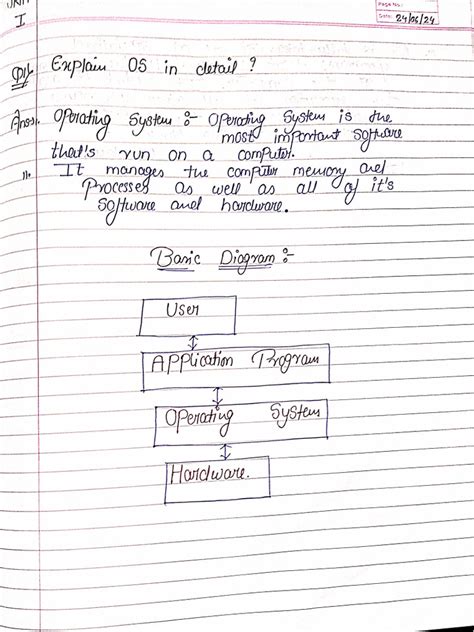 UNIT
I
Page No.:
Date: 24/06/24
Q1). Explain OS in detail ?
Ans:. Operating System :- Operating System is the
most important software
that's run on a computer.
It manages the computer memory and
Processes as well as all of it's
software and hardware.
Basic Diagram :-
User
Application Program
Operating System
Hardware.